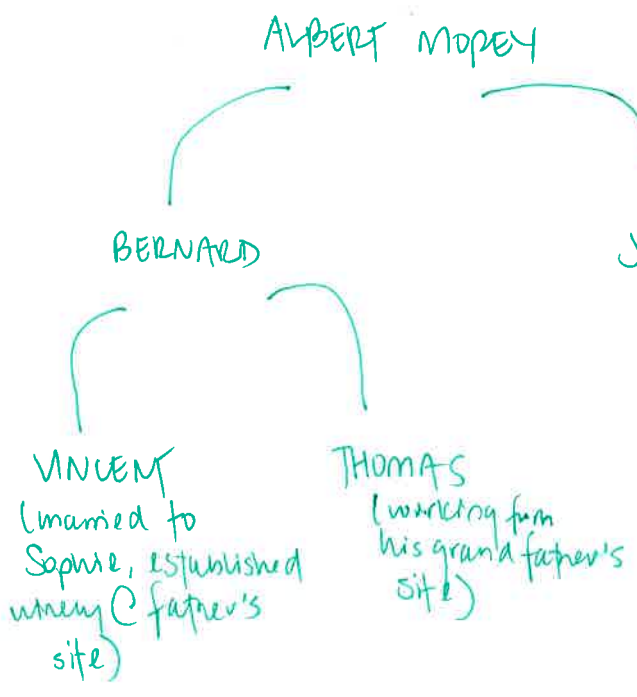 ALBERT MOREY
BERNARD
J
VINCENT
(married to
Sophie, established
winery @ father's
site)
THOMAS
(working from
his grandfather's
site)